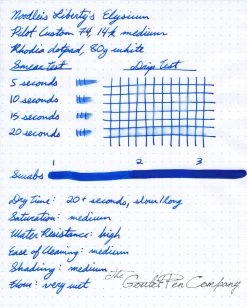 Noodler's Liberty's Elysium
Pilot Custom 74, 14k medium
Rhodia dotpad, 80g white
Smear Test Drip Test
5 seconds
10 seconds
15 seconds
20 seconds
1 2 3
Swabs
Dry Time: 20+ seconds, slow/long
Saturation: medium
Water Resistance: high
Ease of Cleaning: medium
Shading: medium
Flow: very wet
The Goulet Pen Company